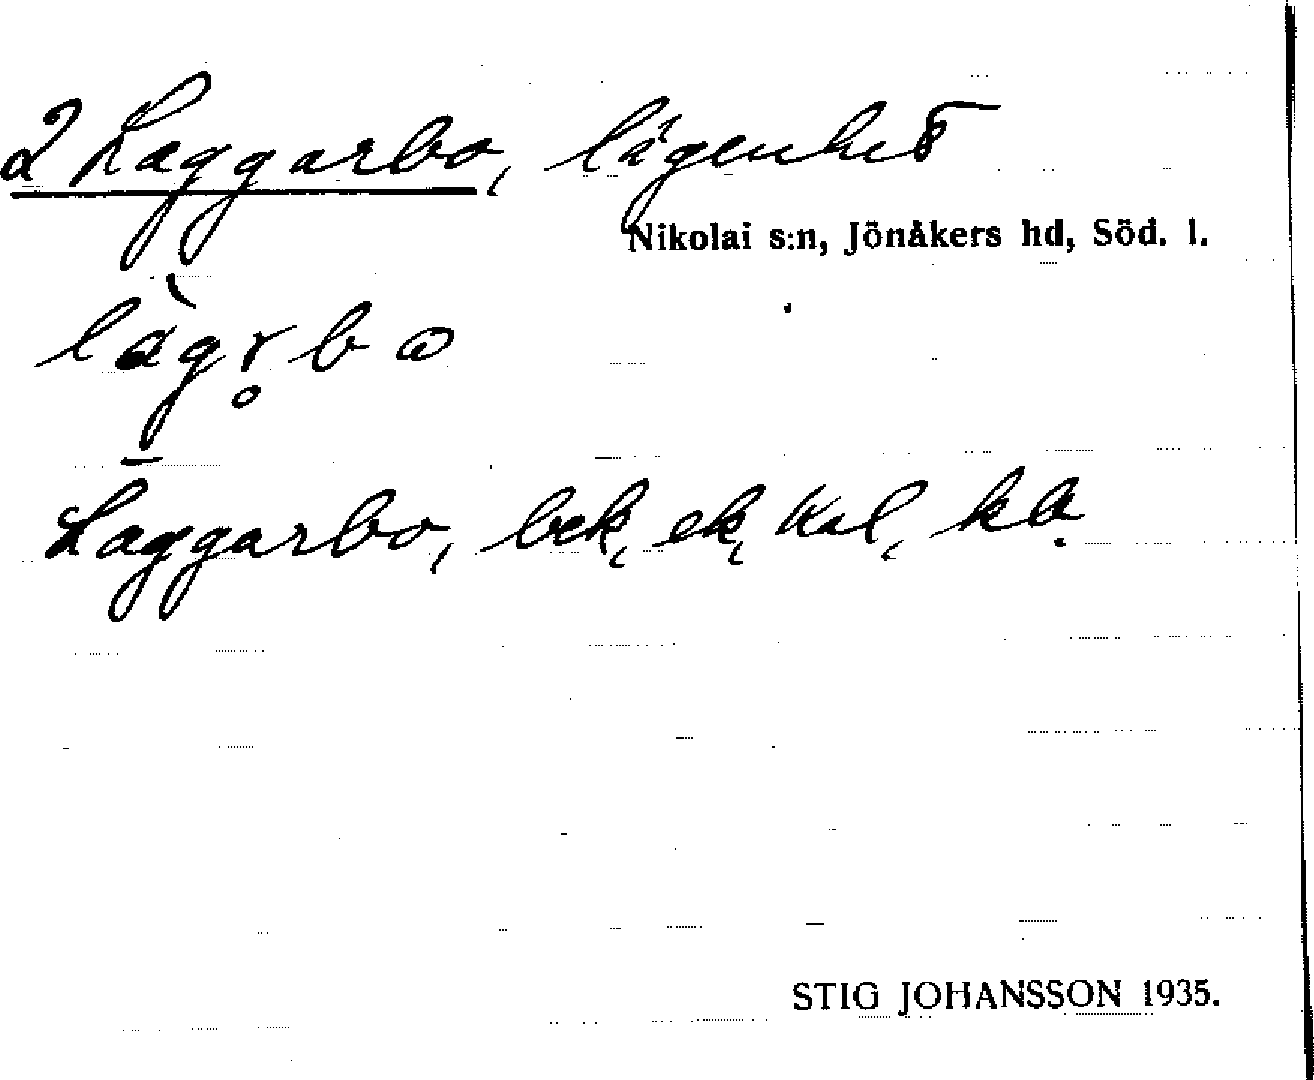 2 Laggarbo, lägenhet
Nikolai s:n, Jönåkers hd, Söd. l.
Laggarbo, bek, ek, kal, kb.
STIG JOHANSSON 1935.